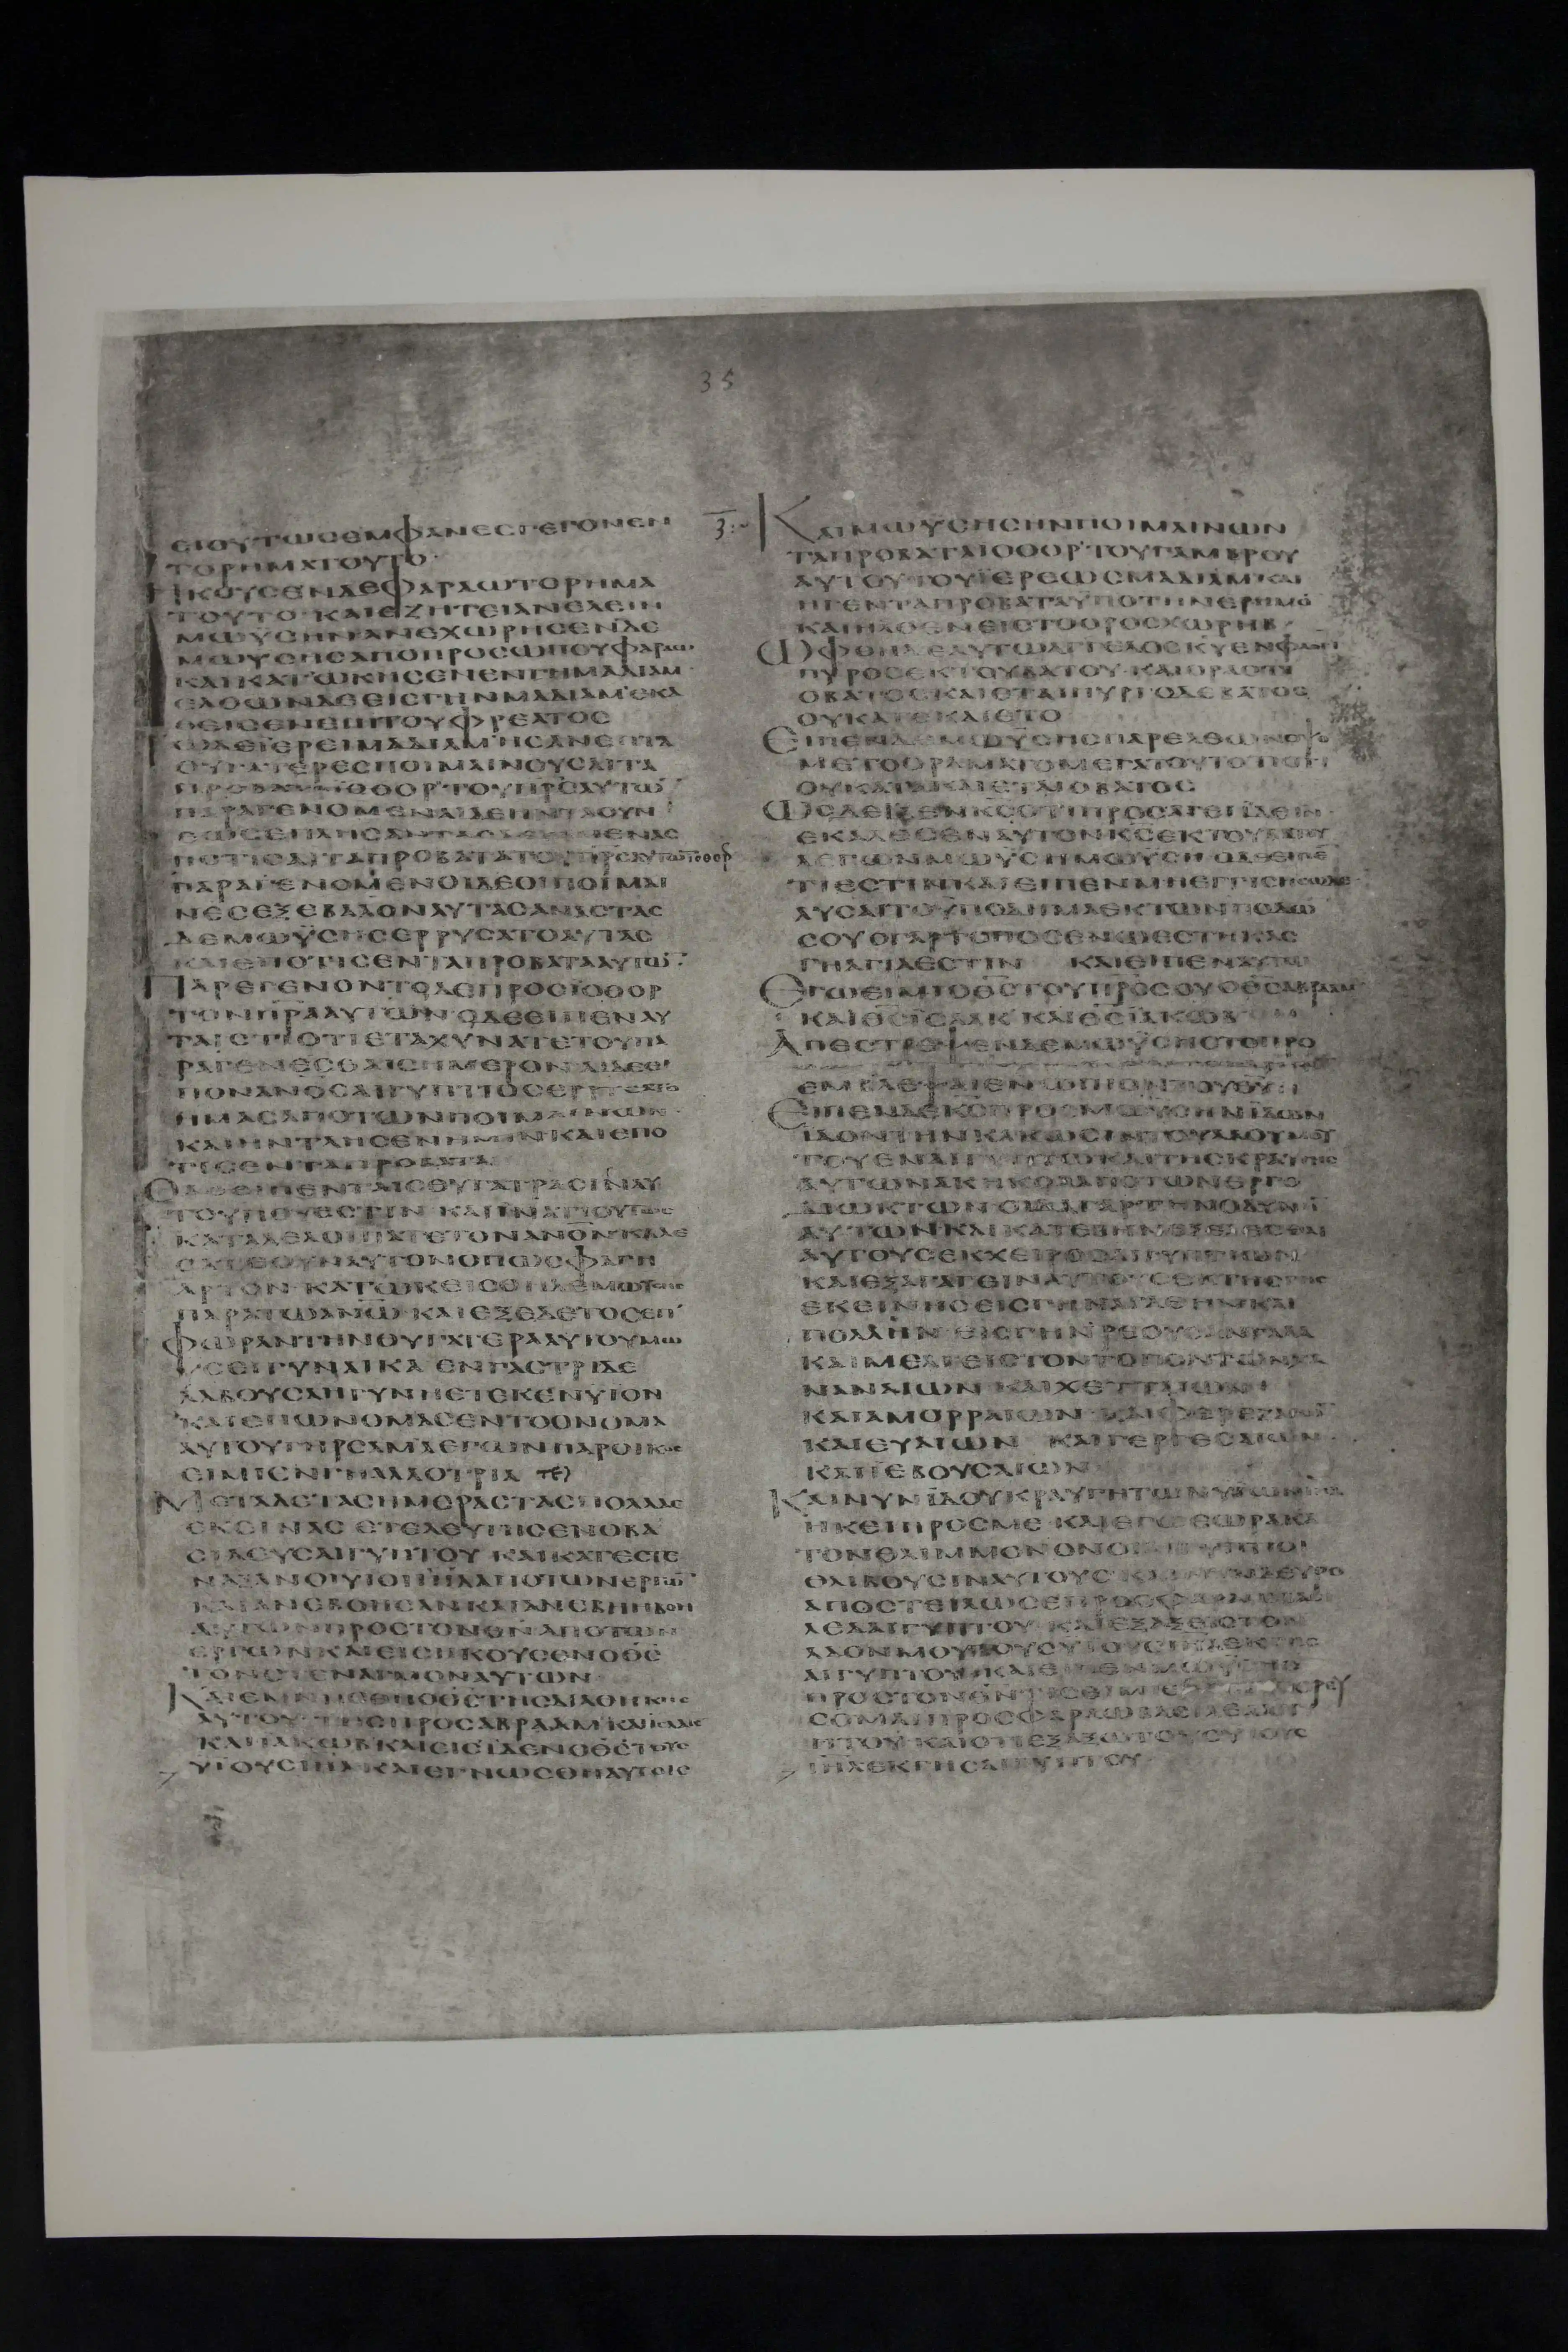 35
ΕΙΟΥΤΩϹΕΜΦΑΝΕϹΓΕΓΟΝΕΝ
ΤΟΡΗΜΑΤΟΥΤΟ·
ΗΚΟΥϹΕΝΔΕΦΑΡΑΩΤΟΡΗΜΑ
ΤΟΥΤΟ ΚΑΙΕΖΗΤΕΙΑΝΕΛΕΙΝ
ΜΩΫϹΗΝ ΑΝΕΧΩΡΗϹΕΝΔΕ
ΜΩΥϹΗϹΑΠΟΠΡΟϹΩΠΟΥΦΑΡΑΩ·
ΚΑΙΚΑΤΩΚΗϹΕΝΕΝΓΗΜΑΔΙΑΜ·
ΕΛΘΩΝΔΕΕΙϹΓΗΝΜΑΔΙΑΜ ΕΚΑ
ΘΕΙϹΕΝΕΠΙΤΟΥΦΡΕΑΤΟϹ
ΤΩΔΕΪΕΡΕΙΜΑΔΙΑΜ ΗϹΑΝΕΠΤΑ
ΘΥΓΑΤΕΡΕϹΠΟΙΜΑΙΝΟΥϹΑΙΤΑ
ΠΡΟΒΑΤΑ ΪΟΘΟΡ ΤΟΥΠΡ̅Ϲ̅ΑΥΤΩ̅
ΠΑΡΑΓΕΝΟΜΕΝΑΙΔΕΗΝΤΛΟΥΝ
ΕΩϹΕΠΛΗϹΑΝ
ΠΟΤΙϹΑΙΤΑΠΡΟΒΑΤΑΤΟΥΠΡ̅Ϲ̅ΑΥΤΩ̅ΪΟΘΟΡ
ΠΑΡΑΓΕΝΟΜΕΝΟΙΔΕΟΙΠΟΙΜΑΙ
ΝΕϹΕΞΕΒΑΛΟΝΑΥΤΑϹΑΝΑϹΤΑϹ
ΔΕΜΩΫϹΗϹΕΡΡΥϹΑΤΟΑΥΤΑϹ
ΚΑΙΕΠΟΤΙϹΕΝΤΑΠΡΟΒΑΤΑΑΥΤΩ̅
ΠΑΡΕΓΕΝΟΝΤΟΔΕΠΡΟϹΪΟΘΟΡ
ΤΟΝΠΡ̅Α̅ΑΥΤΩΝ ΟΔΕΕΙΠΕΝΑΥ
ΤΑΙϹ ΤΙΟΤΙΕΤΑΧΥΝΑΤΕΤΟΥΠΑ
ΡΑΓΕΝΕϹΘΑΙϹΗΜΕΡΟΝ ΑΙΔΕΕΙ
ΠΟΝΑΝΟϹΑΙΓΥΠΤΙΟϹΕΡΡΥϹΑΤΟ
ΗΜΑϹΑΠΟΤΩΝΠΟΙΜΑΙΝΩΝ
ΚΑΙΗΝΤΛΗϹΕΝΗΜΙΝΚΑΙΕΠΟ
ΤΙϹΕΝΤΑΠΡΟΒΑΤΑ
ΟΔΕΕΙΠΕΝΤΑΙϹΘΥΓΑΤΡΑϹΙΝΑΥ
ΤΟΥΠΟΥΕϹΤΙΝ ΚΑΙΪΝΑΤΙΟΥΤΩϹ
ΚΑΤΑΛΕΛΟΙΠΑΤΕΤΟΝΑΝΟ̅Ν̅ΚΑΛΕ
ϹΑΤΕΟΥΝΑΥΤΟΝΟΠΩϹΦΑΓΗ
ΑΡΤΟΝ ΚΑΤΩΚΕΙϹΘΗΔΕΜΩΫϹΗϹ
ΠΑΡΑΤΩΑΝΩ̅ ΚΑΙΕΞΕΔΕΤΟϹΕΠ
ΦΩΡΑΝΤΗΝΘΥΓΑΤΕΡΑΑΥΤΟΥΜΩ
ΥϹΕΙΓΥΝΑΙΚΑ ΕΝΓΑϹΤΡΙΔΕ
ΛΑΒΟΥϹΑΗΓΥΝΗΕΤΕΚΕΝΥΙΟΝ
ΚΑΙΕΠΩΝΟΜΑϹΕΝΤΟΟΝΟΜΑ
ΑΥΤΟΥΓΗΡϹΑΜ ΛΕΓΩΝΠΑΡΟΙΚΟϹ
ΕΙΜΙΕΝΓΗΑΛΛΟΤΡΙΑ
ΜΕΤΑΔΕΤΑϹΗΜΕΡΑϹΤΑϹΠΟΛΛΑϹ
ΕΚΕΙΝΑϹ ΕΤΕΛΕΥΤΗϹΕΝΟΒΑ
ϹΙΛΕΥϹΑΙΓΥΠΤΟΥ ΚΑΙΚΑΤΕϹΤΕ
ΝΑΞΑΝΟΙΥΙΟΙΙ̅Η̅Λ̅ΑΠΟΤΩΝΕΡΓΩ̅
ΚΑΙΑΝΕΒΟΗϹΑΝ ΚΑΙΑΝΕΒΗΗΒΟΗ
ΑΥΤΩΝΠΡΟϹΤΟΝΘ̅Ν̅ΑΠΟΤΩΝ
ΕΡΓΩΝ ΚΑΙΕΙϹΗΚΟΥϹΕΝΟΘ̅Ϲ̅
ΤΟΝϹΤΕΝΑΓΜΟΝΑΥΤΩΝ
ΚΑΙΕΜΝΗϹΘΗΟΘ̅Ϲ̅ΤΗϹΔΙΑΘΗΚΗϹ
ΑΥΤΟΥ ΤΗϹΠΡΟϹΑΒΡΑΑΜ ΚΑΙΪϹΑΑΚ
ΚΑΙΪΑΚΩΒ ΚΑΙΕΙϹΪΔΕΝΟΘ̅Ϲ̅ΤΟΥϹ
ΥΙΟΥϹΙ̅Η̅Λ̅ ΚΑΙΕΓΝΩϹΘΗΑΥΤΟΙϹ
ΚΑΙΜΩΥϹΗϹΗΝΠΟΙΜΑΙΝΩΝ
ΤΑΠΡΟΒΑΤΑΪΟΘΟΡ ΤΟΥΓΑΜΒΡΟΥ
ΑΥΤΟΥΤΟΥΪΕΡΕΩϹΜΑΔΙΑΜ ΚΑΙ
ΗΓΕΝΤΑΠΡΟΒΑΤΑΥΠΟΤΗΝΕΡΗΜΟ̅
ΚΑΙΗΛΘΕΝΕΙϹΤΟΟΡΟϹΧΩΡΗΒ
ΩΦΘΗΔΕΑΥΤΩΑΓΓΕΛΟϹΚ̅Υ̅ΕΝΦΛΟΓΙ
ΠΥΡΟϹΕΚΤΟΥΒΑΤΟΥ ΚΑΙΟΡΑΟΤΙ
ΟΒΑΤΟϹΚΑΙΕΤΑΙΠΥΡΙ ΟΔΕΒΑΤΟϹ
ΟΥΚΑΤΕΚΑΙΕΤΟ
ΕΙΠΕΝΔΕΜΩΫϹΗϹΠΑΡΕΛΘΩΝΟΨΟ
ΜΕΤΟΟΡΑΜΑΤΟΜΕΓΑΤΟΥΤΟ
ΟΥΚΑΤΑΚΑΙΕΤΑΙΟΒΑΤΟϹ
ΩϹΔΕΪΔΕΝΚ̅Ϲ̅ΟΤΙΠΡΟϹΑΓΕΙΪΔΕΙΝ
ΕΚΑΛΕϹΕΝΑΥΤΟΝΚ̅Ϲ̅ΕΚΤΟΥΒΑΤΟΥ
ΛΕΓΩΝΜΩΫϹΗΜΩΥϹΗ ΟΔΕΕΙΠΕ̅
ΤΙΕϹΤΙΝ ΚΑΙΕΙΠΕΝΜΗΕΓΓΙϹΗϹΩΔΕ
ΛΥϹΑΙΤΟΥΠΟΔΗΜΑΕΚΤΩΝΠΟΔΩ̅
ϹΟΥ ΟΓΑΡΤΟΠΟϹΕΝΩΕϹΤΗΚΑϹ
ΓΗΑΓΙΑΕϹΤΙΝ ΚΑΙΕΙΠΕΝΑΥΤΩ
ΕΓΩΕΙΜΙΟΘ̅Ϲ̅ΤΟΥΠΡ̅Ϲ̅ϹΟΥ ΟΘ̅Ϲ̅ΑΒΡΑΑΜ
ΚΑΙΘ̅Ϲ̅ΪϹΑΑΚ ΚΑΙΘ̅Ϲ̅ΪΑΚΩΒ
ΑΠΕϹΤΡΕΨΕΝΔΕΜΩΥϹΗϹΤΟΠΡΟ
ΕΜΒΛΕΨΑΙΕΝΩΠΙΟΝΤΟΥΘ̅Υ̅
ΕΙΠΕΝΔΕΚ̅Ϲ̅ΠΡΟϹΜΩΫϹΗΝ ΪΔΩΝ
ΪΔΟΝΤΗΝΚΑΚΩϹΙΝΤΟΥΛΑΟΥΜΟΥ
ΤΟΥΕΝΑΙΓΥΠΤΩΚΑΙΤΗϹΚΡΑΥΓΗϹ
ΑΥΤΩΝΑΚΗΚΟΑΑΠΟΤΩΝΕΡΓΟ
ΔΙΩΚΤΩΝ ΟΙΔΑΓΑΡΤΗΝΟΔΥΝΗ̅
ΑΥΤΩΝΚΑΙΚΑΤΕΒΗΝΕΞΕΛΕϹΘΑΙ
ΑΥΤΟΥϹΕΚΧΕΙΡΟϹΑΙΓΥΠΤΙΩΝ
ΚΑΙΕΞΑΓΑΓΕΙΝΑΥΤΟΥϹΕΚΤΗϹΓΗϹ
ΕΚΕΙΝΗϹΕΙϹΓΗΝΑΓΑΘΗΝΚΑΙ
ΠΟΛΛΗΝ ΕΙϹΓΗΝΡΕΟΥϹΑΝΓΑΛΑ
ΚΑΙΜΕΛΙ ΕΙϹΤΟΝΤΟΠΟΝΤΩΝΧΑ
ΝΑΝΑΙΩΝ ΚΑΙΧΕΤΤΑΙΩΝ
ΚΑΙΑΜΟΡΡΑΙΩΝ ΚΑΙΦΕΡΕΖΑΙΩ̅
ΚΑΙΕΥΑΙΩΝ ΚΑΙΓΕΡΓΕϹΑΙΩΝ
ΚΑΙΪΕΒΟΥϹΑΙΩΝ
ΚΑΙΝΥΝΪΔΟΥΚΡΑΥΓΗΤΩΝΥΙΩΝΙ̅Η̅Λ̅
ΗΚΕΙΠΡΟϹΜΕ ΚΑΓΩΕΩΡΑΚΑ
ΤΟΝΘΛΙΜΜΟΝΟΝΟΙΑΙΓΥΠΤΙΟΙ
ΘΛΙΒΟΥϹΙΝΑΥΤΟΥϹ ΚΑΙΝΥΝΔΕΥΡΟ
ΑΠΟϹΤΕΙΛΩϹΕΠΡΟϹΦΑΡΑΩΒΑϹΙ
ΛΕΑΑΙΓΥΠΤΟΥ ΚΑΙΕΞΑΞΕΙϹΤΟΝ
ΛΑΟΝΜΟΥΤΟΥϹΥΙΟΥϹΙ̅Η̅Λ̅ΕΚΓΗϹ
ΑΙΓΥΠΤΟΥ ΚΑΙΕΙΠΕΝΜΩΫϹΗϹ
ΠΡΟϹΤΟΝΘ̅Ν̅ΤΙϹΕΙΜΙ ΠΟΡΕΥ
ϹΟΜΑΙΠΡΟϹΦΑΡΑΩΒΑϹΙΛΕΑΑΙΓΥ
ΠΤΟΥ ΚΑΙΟΤΙΕΞΑΞΩΤΟΥϹΥΙΟΥϹ
Ι̅Η̅Λ̅ΕΚΓΗϹΑΙΓΥΠΤΟΥ